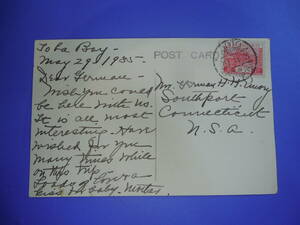 Toba Bay -
May 29, 1935 -
POST CARD
Dear Furman -
Wish you could
be here with us.
It is all most
interesting. Have
wished for you
many times while
on this trip.
Loads of love &
kiss on baby.
Mr. Furman H.
Southport
Connecticut
U.S.A.